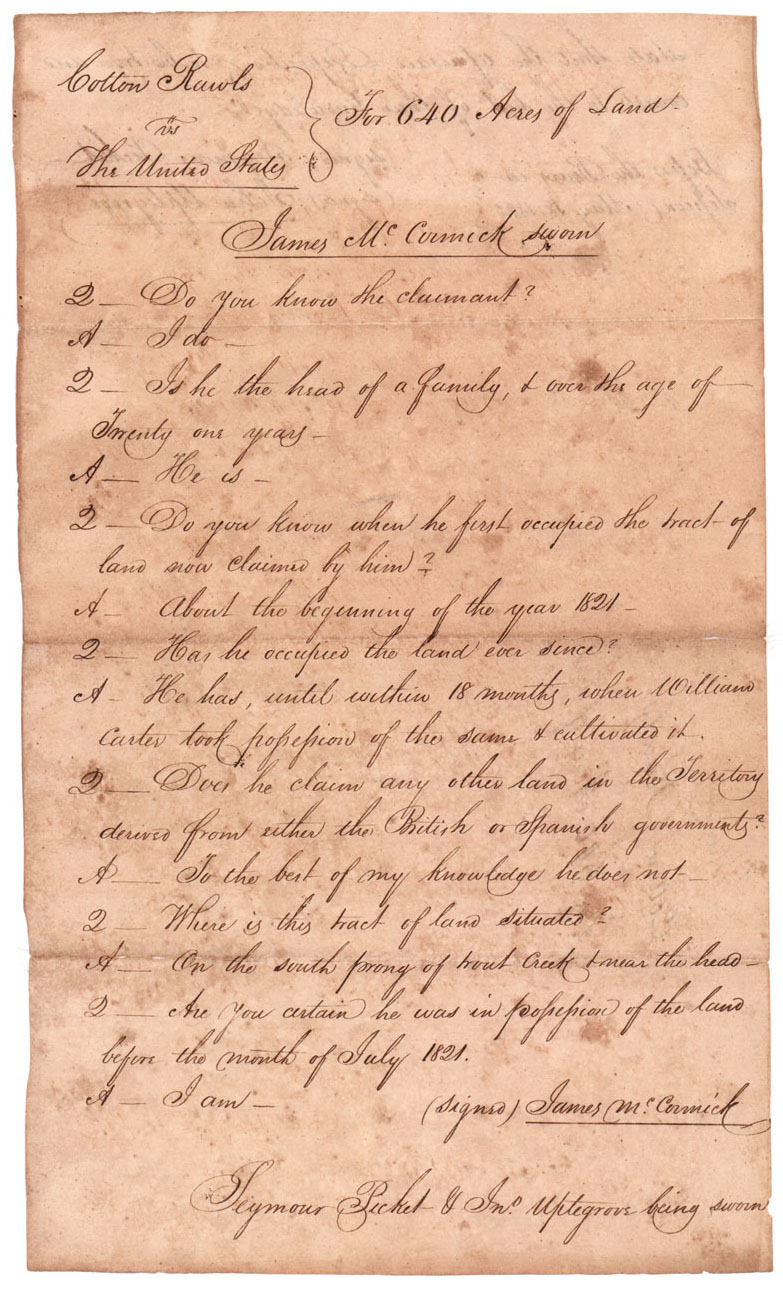 Cotton Rawls
vs
The United States
For 640 Acres of Land
James Mc Cormick sworn
Q — Do you know the claimant?
A — I do —
Q — Is he the head of a family, & over the age of
Twenty one years —
A — He is —
Q — Do you know when he first occupied the tract of
land now claimed by him?
A — About the beginning of the year 1821 —
Q — Has he occupied the land ever since?
A — He has, until within 18 months, when William
Carter took possession of the same & cultivated it.
Q — Does he claim any other land in the Territory
derived from either the British or Spanish governments?
A — To the best of my knowledge he does not —
Q — Where is this tract of land situated?
A — On the south prong of trout Creek & near the head —
Q — Are you certain he was in possession of the land
before the month of July 1821.
A — I am —
(signed) James Mc Cormick
Seymour Picket & Jno. Uptegrove being sworn